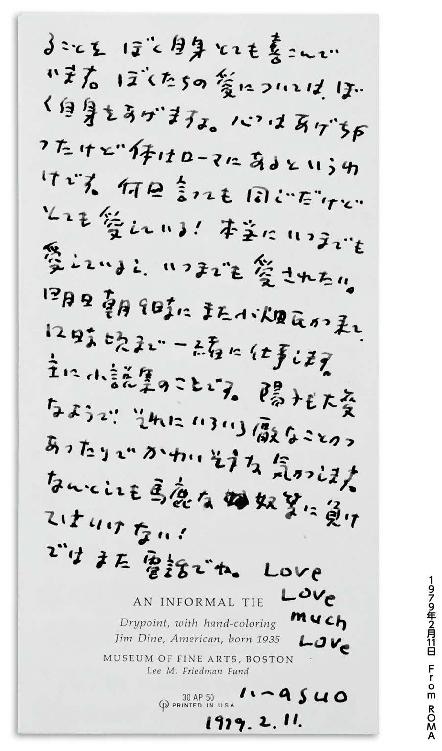 ることを ぼく自身とても喜こんで
います。ぼくたちの愛については、ぼ
く自身をあげますよ。心はあげちゃ
ったけど体はローマにあるというわ
けです。何回言っても同じだけど
とても愛している！本当にいつまでも
愛しているし、いつまでも愛されたい。
明日朝9時にまた小畑氏が来て、
12時頃まで一緒に仕事します。
主に小説集のことです。陽子も大変
なようで、それにいろいろ厭なことがつ
あったりでかわいそうな気がします。
なんとしても馬鹿な奴等に負け
てはいけない！
ではまた電話でね。 Love
Love
much
Love
AN INFORMAL TIE
Drypoint, with hand-coloring
Jim Dine, American, born 1935
MUSEUM OF FINE ARTS, BOSTON
Lee M. Friedman Fund
30 AP 50
PRINTED IN U.S.A.
masuo
1979.2.11.
1979年2月11日 From ROMA